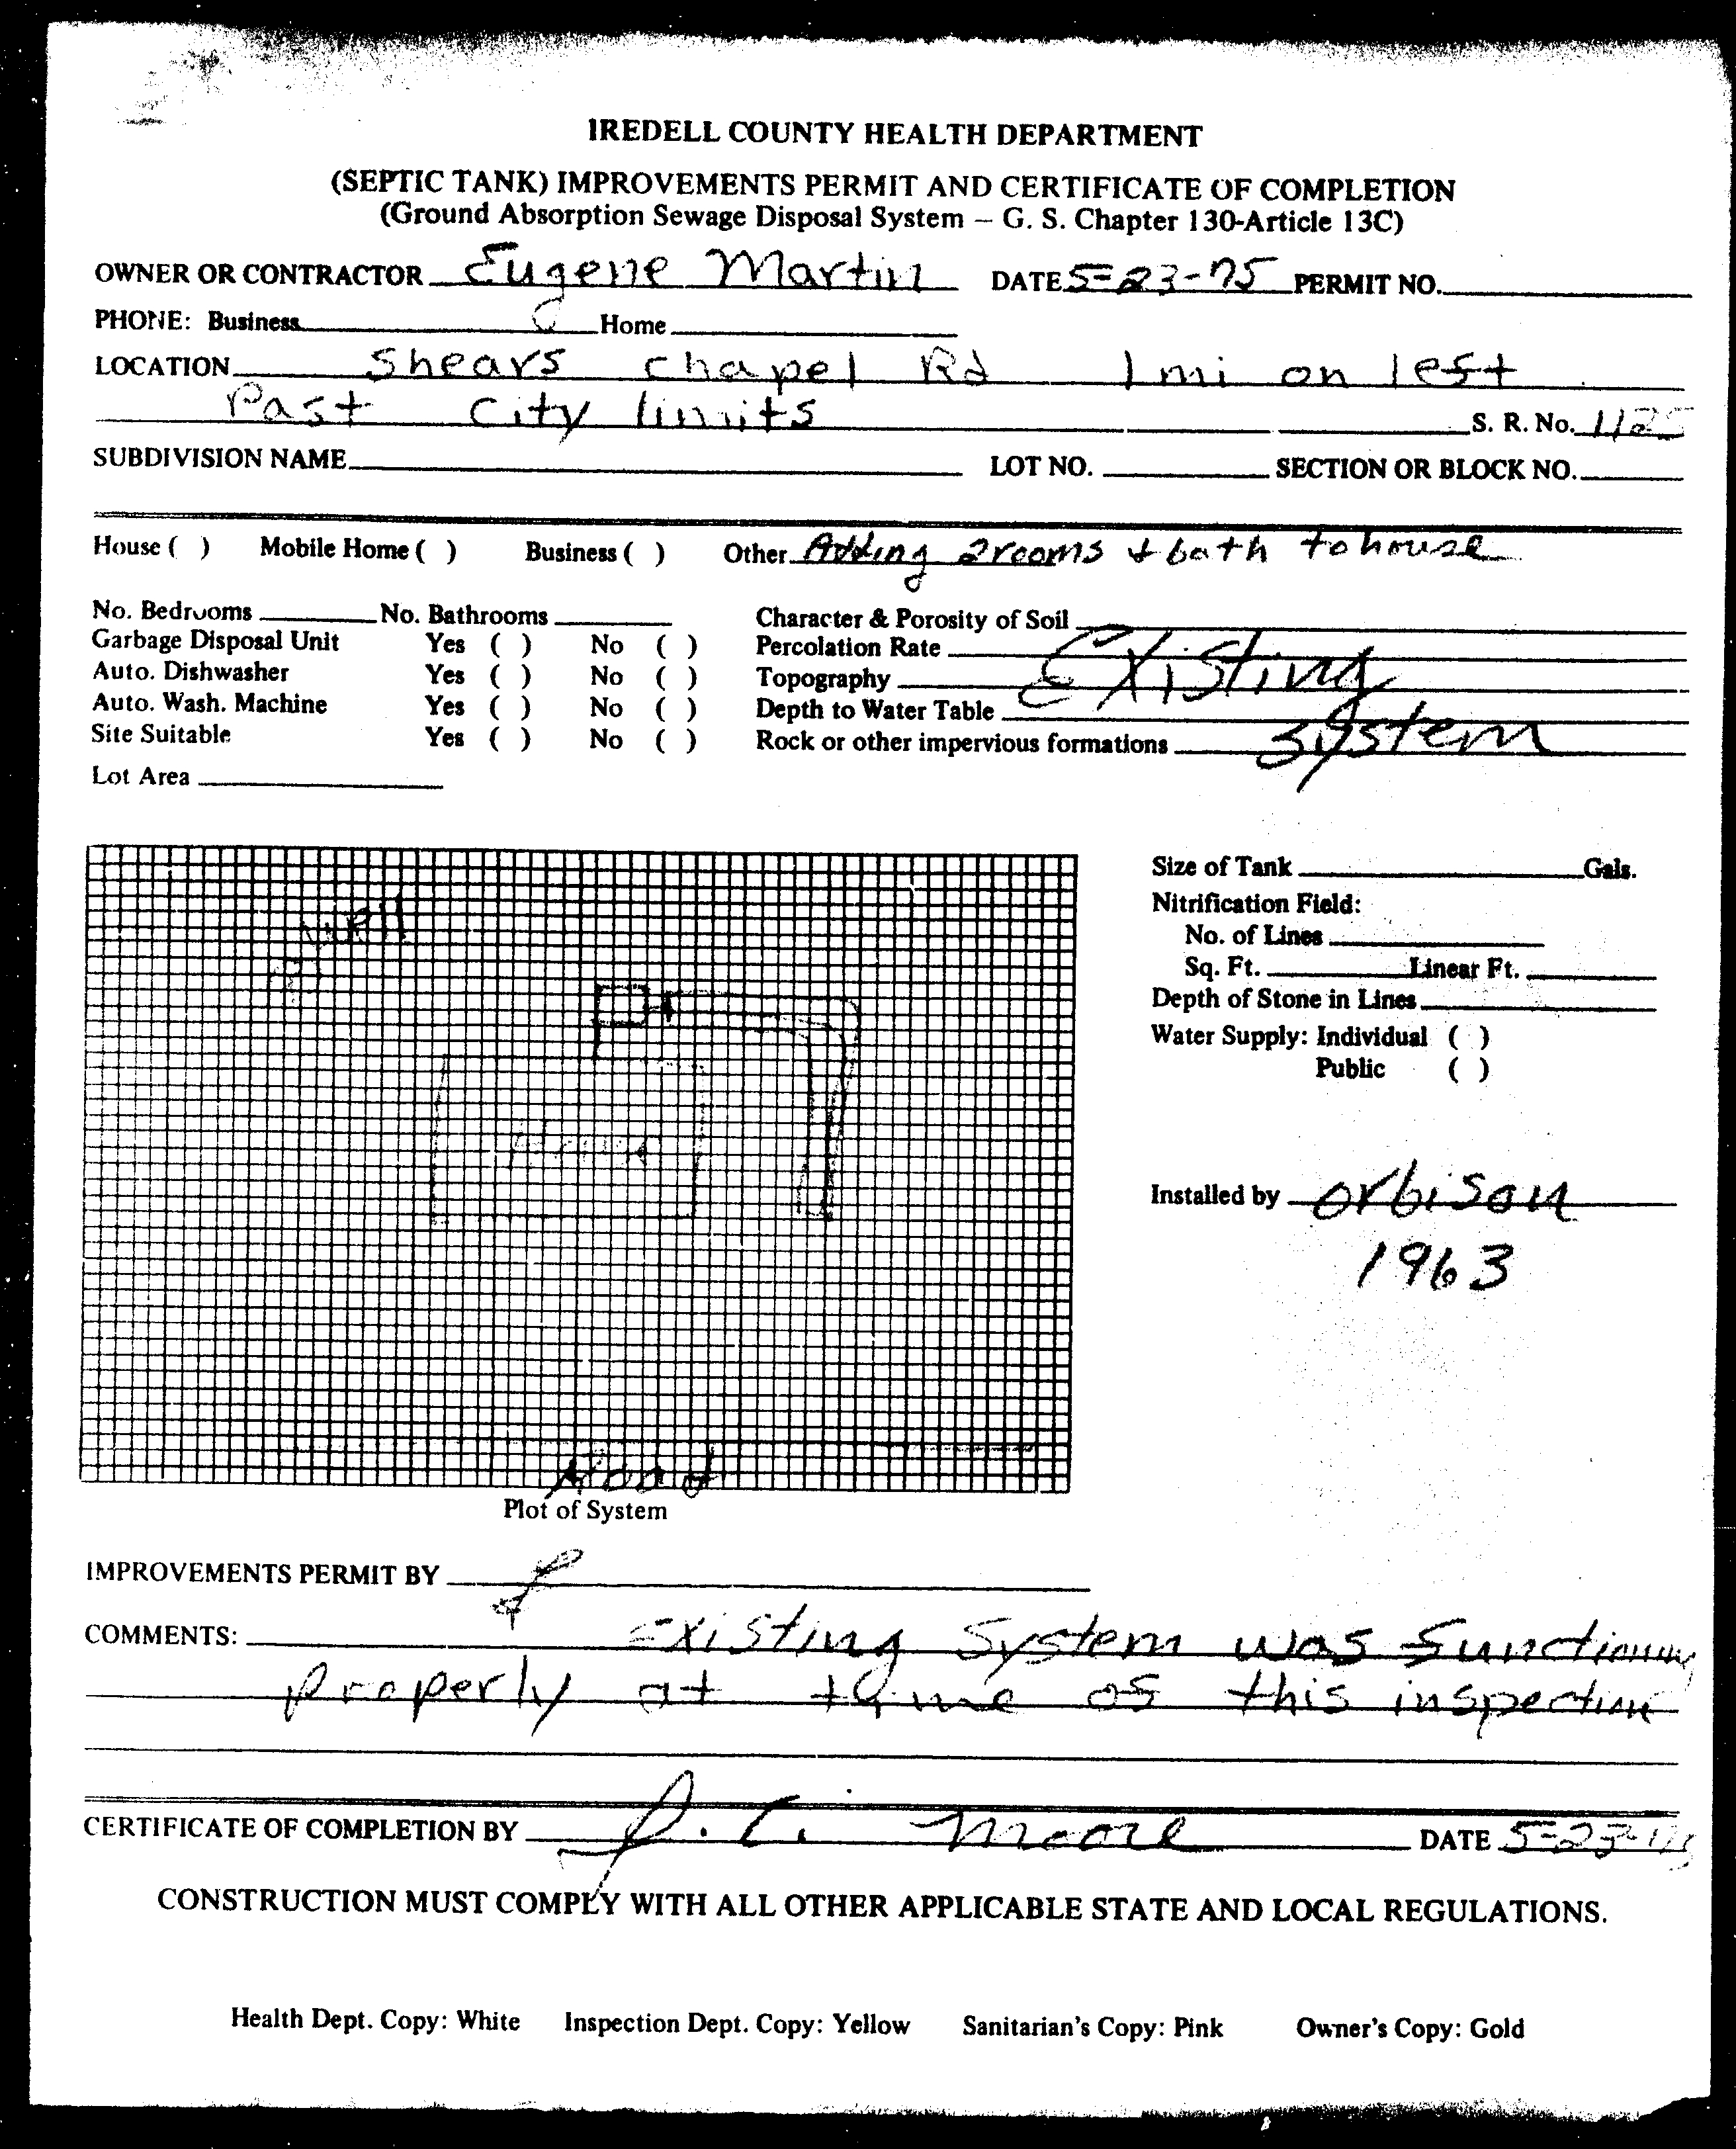 IREDELL COUNTY HEALTH DEPARTMENT
(SEPTIC TANK) IMPROVEMENTS PERMIT AND CERTIFICATE OF COMPLETION
(Ground Absorption Sewage Disposal System – G. S. Chapter 130-Article 13C)
OWNER OR CONTRACTOR Eugene Martin DATE 5-23-75 PERMIT NO.
PHONE: Business Home
LOCATION Shears chapel Rd 1 mi on left
Past City limits S. R. No. 1125
SUBDIVISION NAME LOT NO. SECTION OR BLOCK NO.
House ( ) Mobile Home ( ) Business ( ) Other Adding 2 rooms & bath to house
No. Bedrooms No. Bathrooms Character & Porosity of Soil
Garbage Disposal Unit Yes ( ) No ( ) Percolation Rate Existing
Auto. Dishwasher Yes ( ) No ( ) Topography
Auto. Wash. Machine Yes ( ) No ( ) Depth to Water Table system
Site Suitable Yes ( ) No ( ) Rock or other impervious formations
Lot Area
Size of Tank Gals.
Nitrification Field:
well
No. of Lines
Sq. Ft. Linear Ft.
Depth of Stone in Lines
Water Supply: Individual ( )
Public ( )
House
Installed by Orbison
1963
Road
Plot of System
IMPROVEMENTS PERMIT BY
COMMENTS: Existing System was functioning
properly at time of this inspection
CERTIFICATE OF COMPLETION BY J. C. Moore DATE 5-23-75
CONSTRUCTION MUST COMPLY WITH ALL OTHER APPLICABLE STATE AND LOCAL REGULATIONS.
Health Dept. Copy: White Inspection Dept. Copy: Yellow Sanitarian's Copy: Pink Owner's Copy: Gold